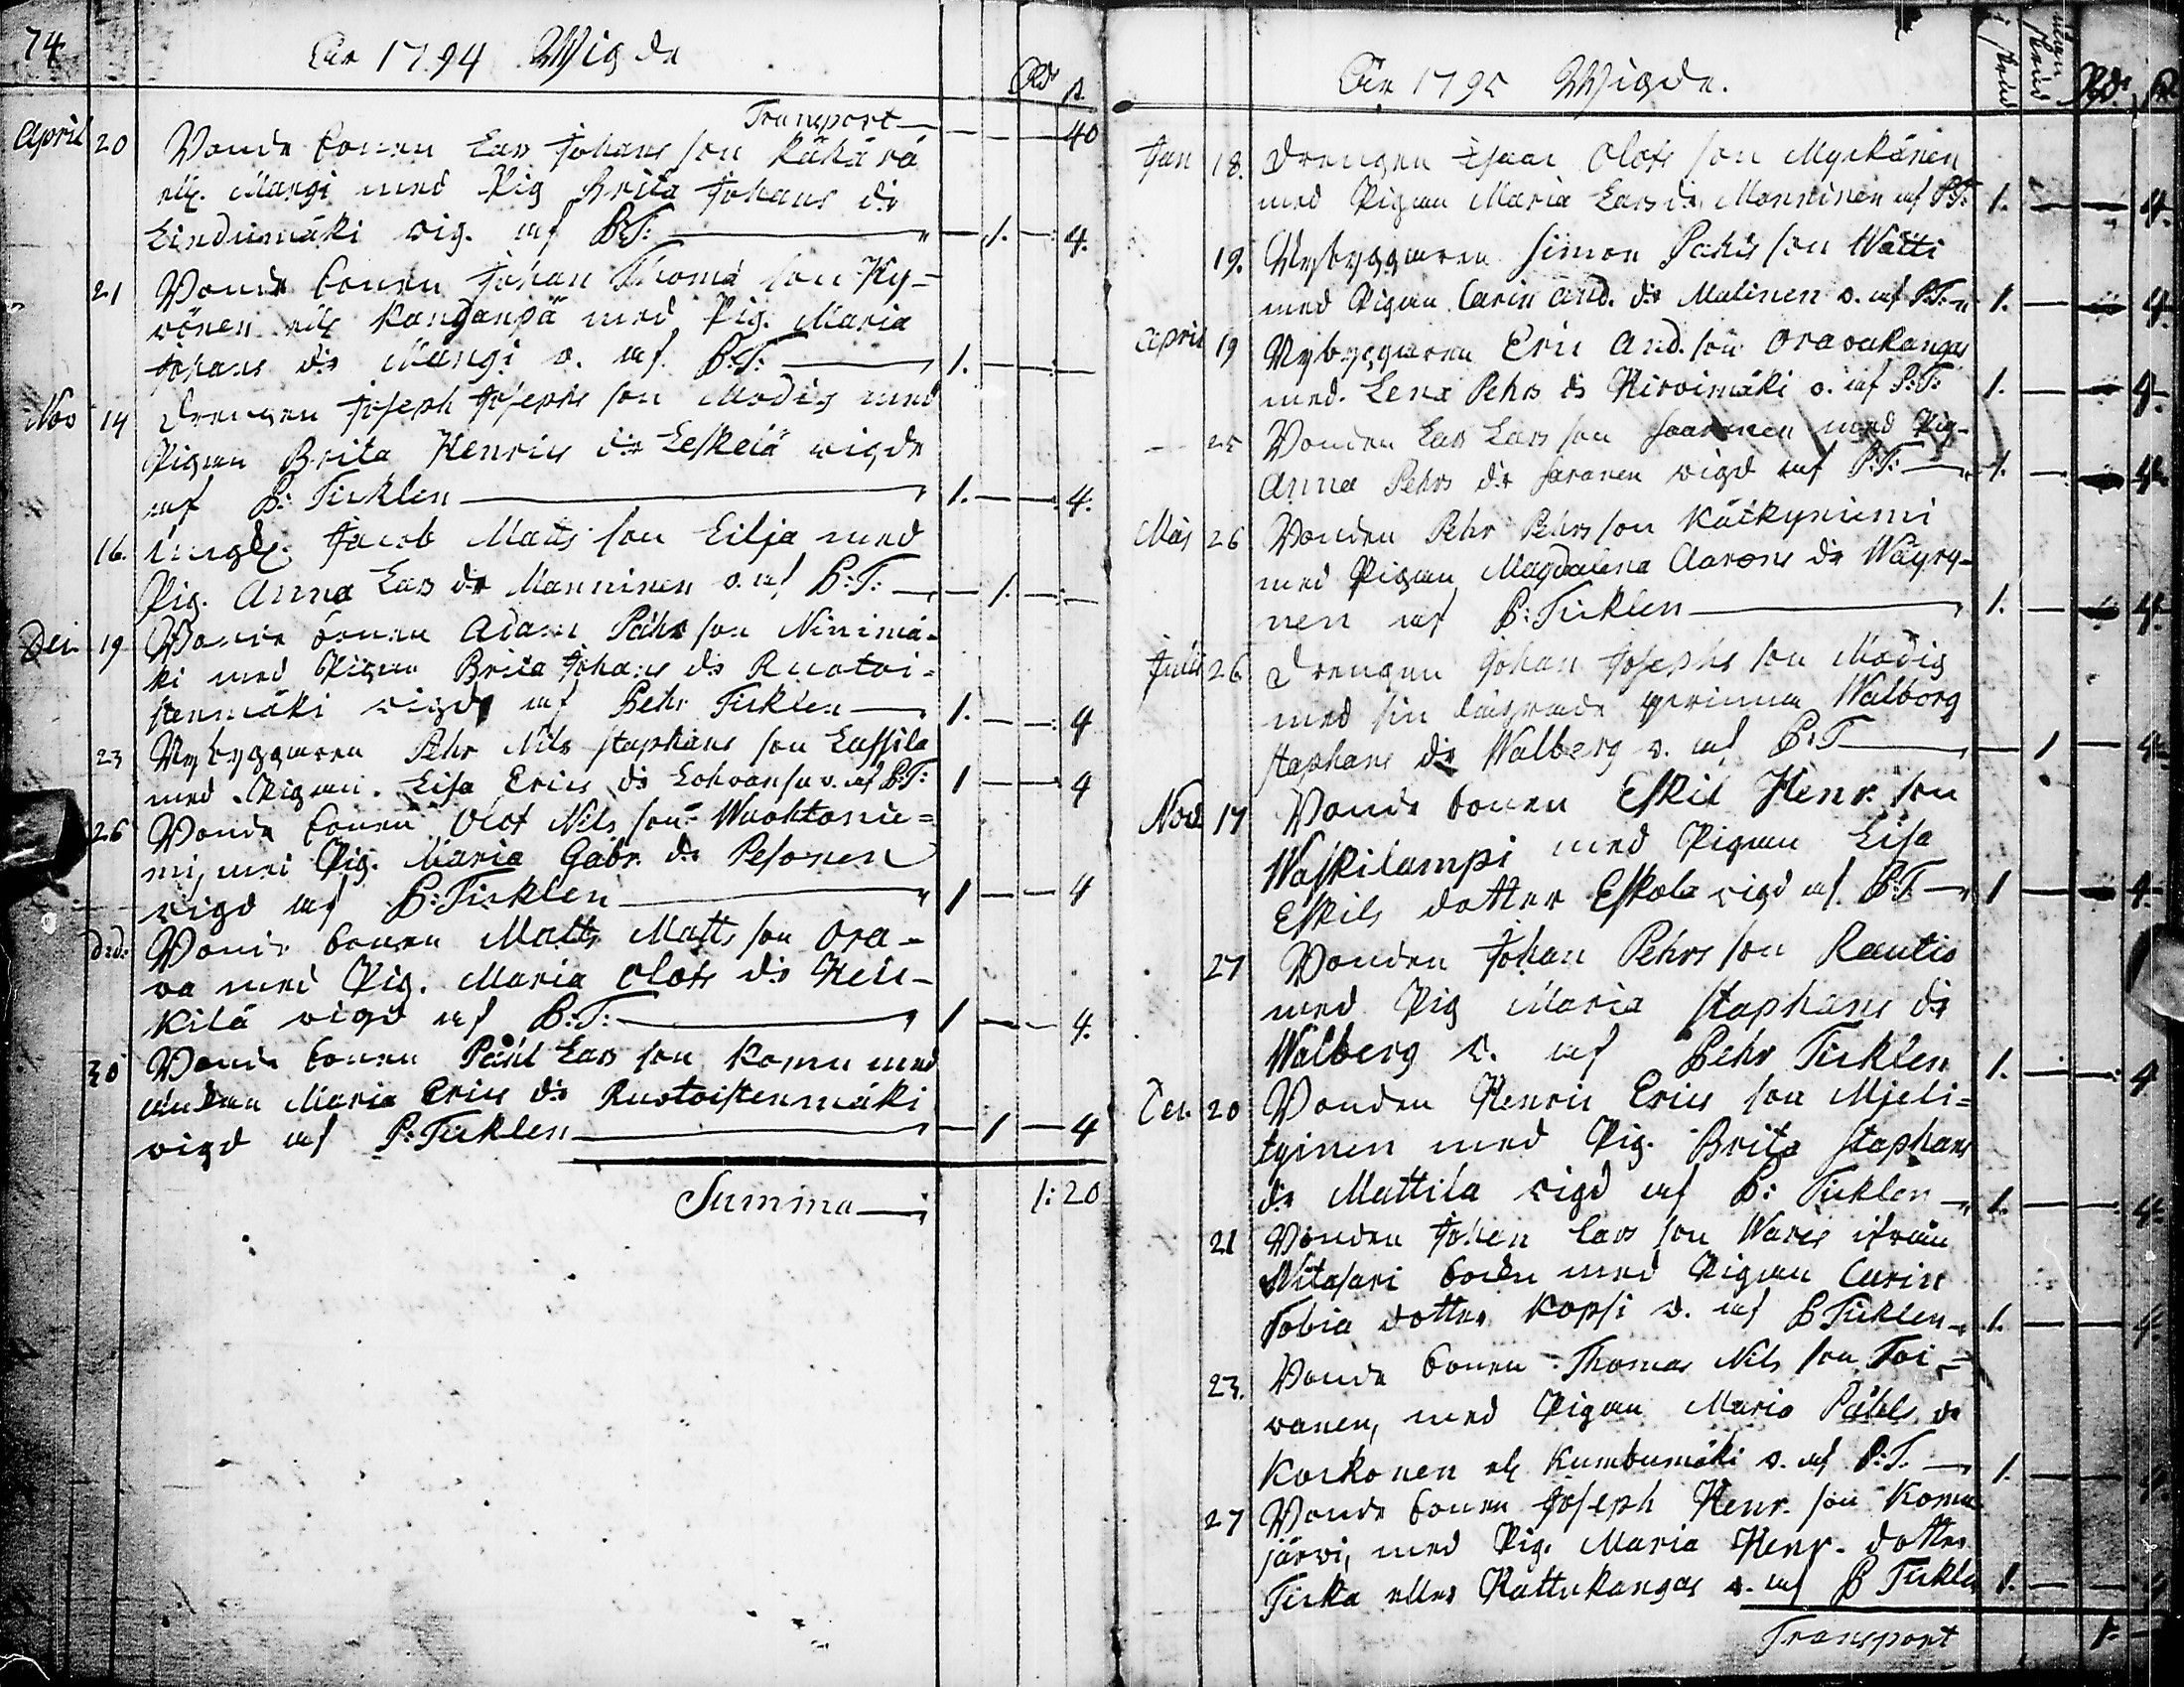 74
År 1794 Wigde
Rd s.
Transport — 40
April 20 Bonde sonen Lars Johans son Kähärä
ell. Mangi med Pig Brita Johans dr
Lindumäki vig. af P:T: — 1. — 4.
21 Bonde sonen Johan Thoma son Hy-
vönen ell Kanganpä med Pig. Maria
Johans dr Mangi v. af P:T: — 1. —
Nov 14 Drengen Joseph Josephs son Modig med
Pigan Brita Henrics dr Leskelä vigde
af P: Ticklen — 1. — 4.
16. Jacob Matts son Lilja med
Pig. Anna Lars dr Manninen v. af P:T: — 1. —
Dec 19 Bonde sonen Adam Påhls son Ninimä-
ki med Pigan Brita Johans dr Ruotoi-
stenmäki vigde af Pehr Ticklen — 1. — 4
23 Nybyggaren Pehr Nils Staphans son Lassila
med Pigan Lisa Erics dr Lohvansu v. af P:T: 1 — 4
26 Bonde sonen Olof Nils son Wuoktonie-
mi, med Pig. Maria Gabr. dr Pesonen
vigd af P: Ticklen — 1 — 4
Bonde sonen Matts Matts son Ora-
va med Pig. Maria Olofs dr Heik-
kilä vigd af P:T: — 1 — 4.
30 Bonde sonen Påhl Lars son Komu med
Enkan Maria Erics dr Ruotoistenmäki
vigd af P: Ticklen — 1 — 4
Summa — 1: 20
År 1795 Wigde.
Rd. s
Jan 18. Drengen Isaac Olofs son Myckänen
med Pigan Maria Lars dr Manninen af P:T: 1. — 4.
19. Nybyggaren Simon Påhls son Wätti
med Pigan Carin And. dr Malinen v. af P:T: 1. — 4.
April 19 Nybyggaren Eric And. son Oravakangas
med Lena Pehrs dr Hirvimäki v. af P:T: 1. — 4.
25 Bonden Lars Lars son Saarinen med Pig-
Anna Pehrs dr Saranen vigd af P:T: — 1. — 4.
Maj 26 Bonden Pehr Pehrs son Käckyniemi
med Pigan Magdalena Aarons dr Wäyry-
nen af P: Ticklen — 1. — 4.
Julii 26 Drengen Johan Josephs son Modig
med sin lägrade qvinna Walborg
Staphans dr Walberg v. af P:T — 1 — 4.
Nov 17 Bonde sonen Eskil Henr. son
Waskilampi med Pigan Lisa
Eskils dotter Eskola vigd af P:T — 1 — 4.
27 Bonden Johan Pehrs son Rautio
med Pig Maria Staphans dr
Walberg v. af Pehr Ticklen 1. — 4
Dec. 20 Bonden Henric Erics son Mjeli-
tyinen med Pig. Brita Staphans
dr Mattila vigd af P: Ticklen — 1. — 4.
21 Bonden Johan Lars son Wares ifrån
Witasari Socken med Pigan Carin
Tobia dotter Kopsi v. af P Ticklen — 1. — 4.
23. Bonde sonen Thomas Nils son Toi-
vanen, med Pigan Maria Påhls dr
Korkonen ell Kumbumäki v. af P:T. — 1. — 4.
27 Bonde sonen Joseph Henr. son Komu
järvi, med Pig. Maria Henr. dotter
Ticka eller Rättukangas v. af P Ticklen 1. — 4
Transport 1. —